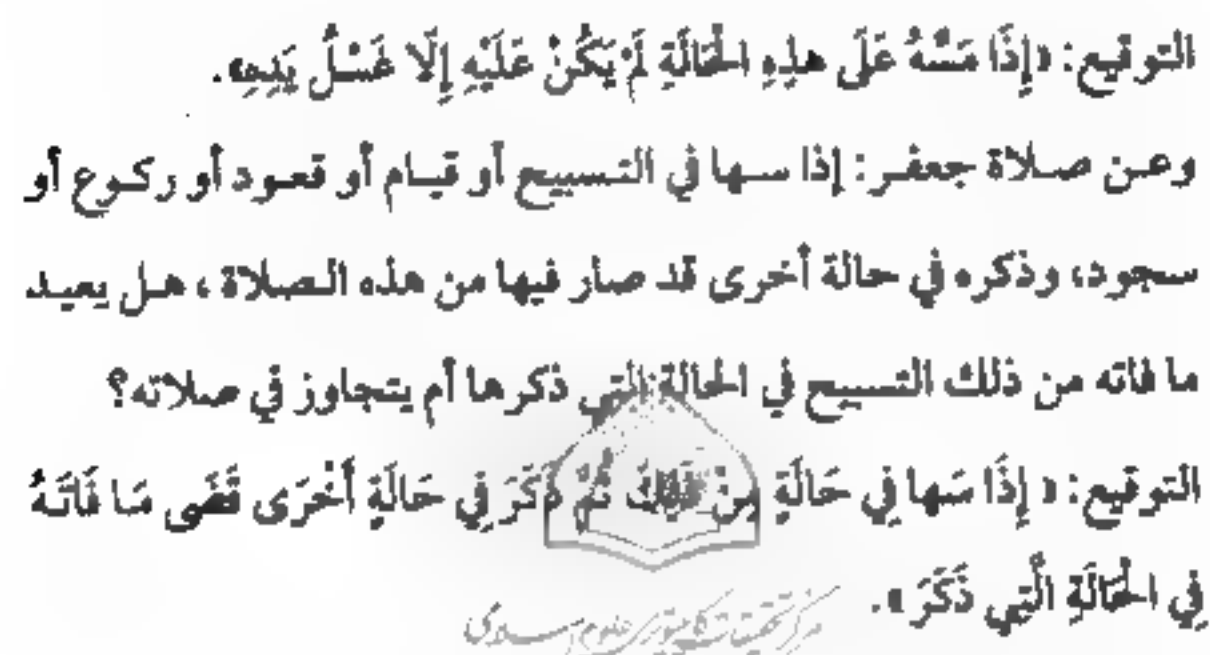 التوقيع: «إِذَا مَسَّهُ عَلَى هذِهِ الحَالَةِ لَمْ يَكُنْ عَلَيْهِ إِلَّا غَسْلُ يَدِهِ».
وعن صلاة جعفر: إذا سها في التسبيح أو قيام أو قعود أو ركوع أو
سجود، وذكره في حالة أخرى قد صار فيها من هذه الصلاة، هل يعيد
ما فاته من ذلك التسبيح في الحالة التي ذكرها أم يتجاوز في صلاته؟
التوقيع: «إِذَا سَها فِي حَالَةٍ مِنْ ذَلِكَ ثُمَّ ذَكَرَ فِي حَالَةٍ أُخْرَى قَضَى مَا فَاتَهُ
فِي الحَالَةِ الَّتِي ذَكَرَ».
مرکز تحقیقات کامپیوتری علوم اسلامی